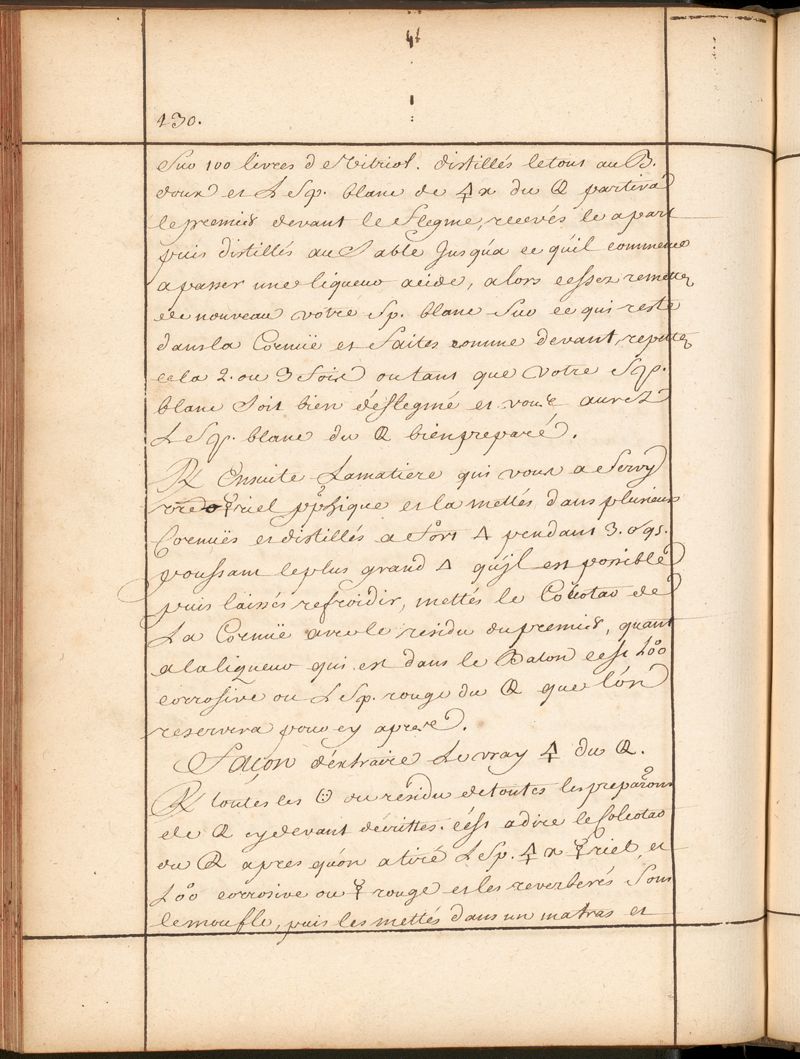 430.
Sur 100 livres de Vitriol. distillés letout au B.
doux et L Sp. blanc de 🜍 du partira
le premier devant le Flegme, recevés le apart
puis distillés au Sable Jusqu'a ce qu'il commence
a passer une liqueur acide, alors cessez remettez
de nouveau votre Sp. blanc Sur ce qui reste
dans la Cornuë et Faites comme devant, repettez
cela 2. ou 3 Fois ou tant que Votre Sp.
blanc Soit bien déflegmé et vous aurez
L Sp. blanc du bien preparé.
Ensuite Lamatiere qui vous a Servy
et la mettés dans plusieurs
Cornuës et distillés a Fort △ pendant 3.
poussant le plus grand △ qu'jl est possible
puis laissés refroidir, mettés le Colcotar de
La Cornuë avec le residu du premier, quant
a la liqueur qui est dans le Balon c'est
corrosive ou L Sp. rouge du que l'ón
reservera pour cy aprez.
Façon d'éxtraire Le vray 🜍 du
toutes les ou residu de toutes les preparons
de cy devant décrittes. c'ést a dire le Colcotar
du apres qu'ón a tiré L Sp. 🜍 et
corrosive ou rouge et les reverberés Sous
le moufle, puis les mettés dans un matras et